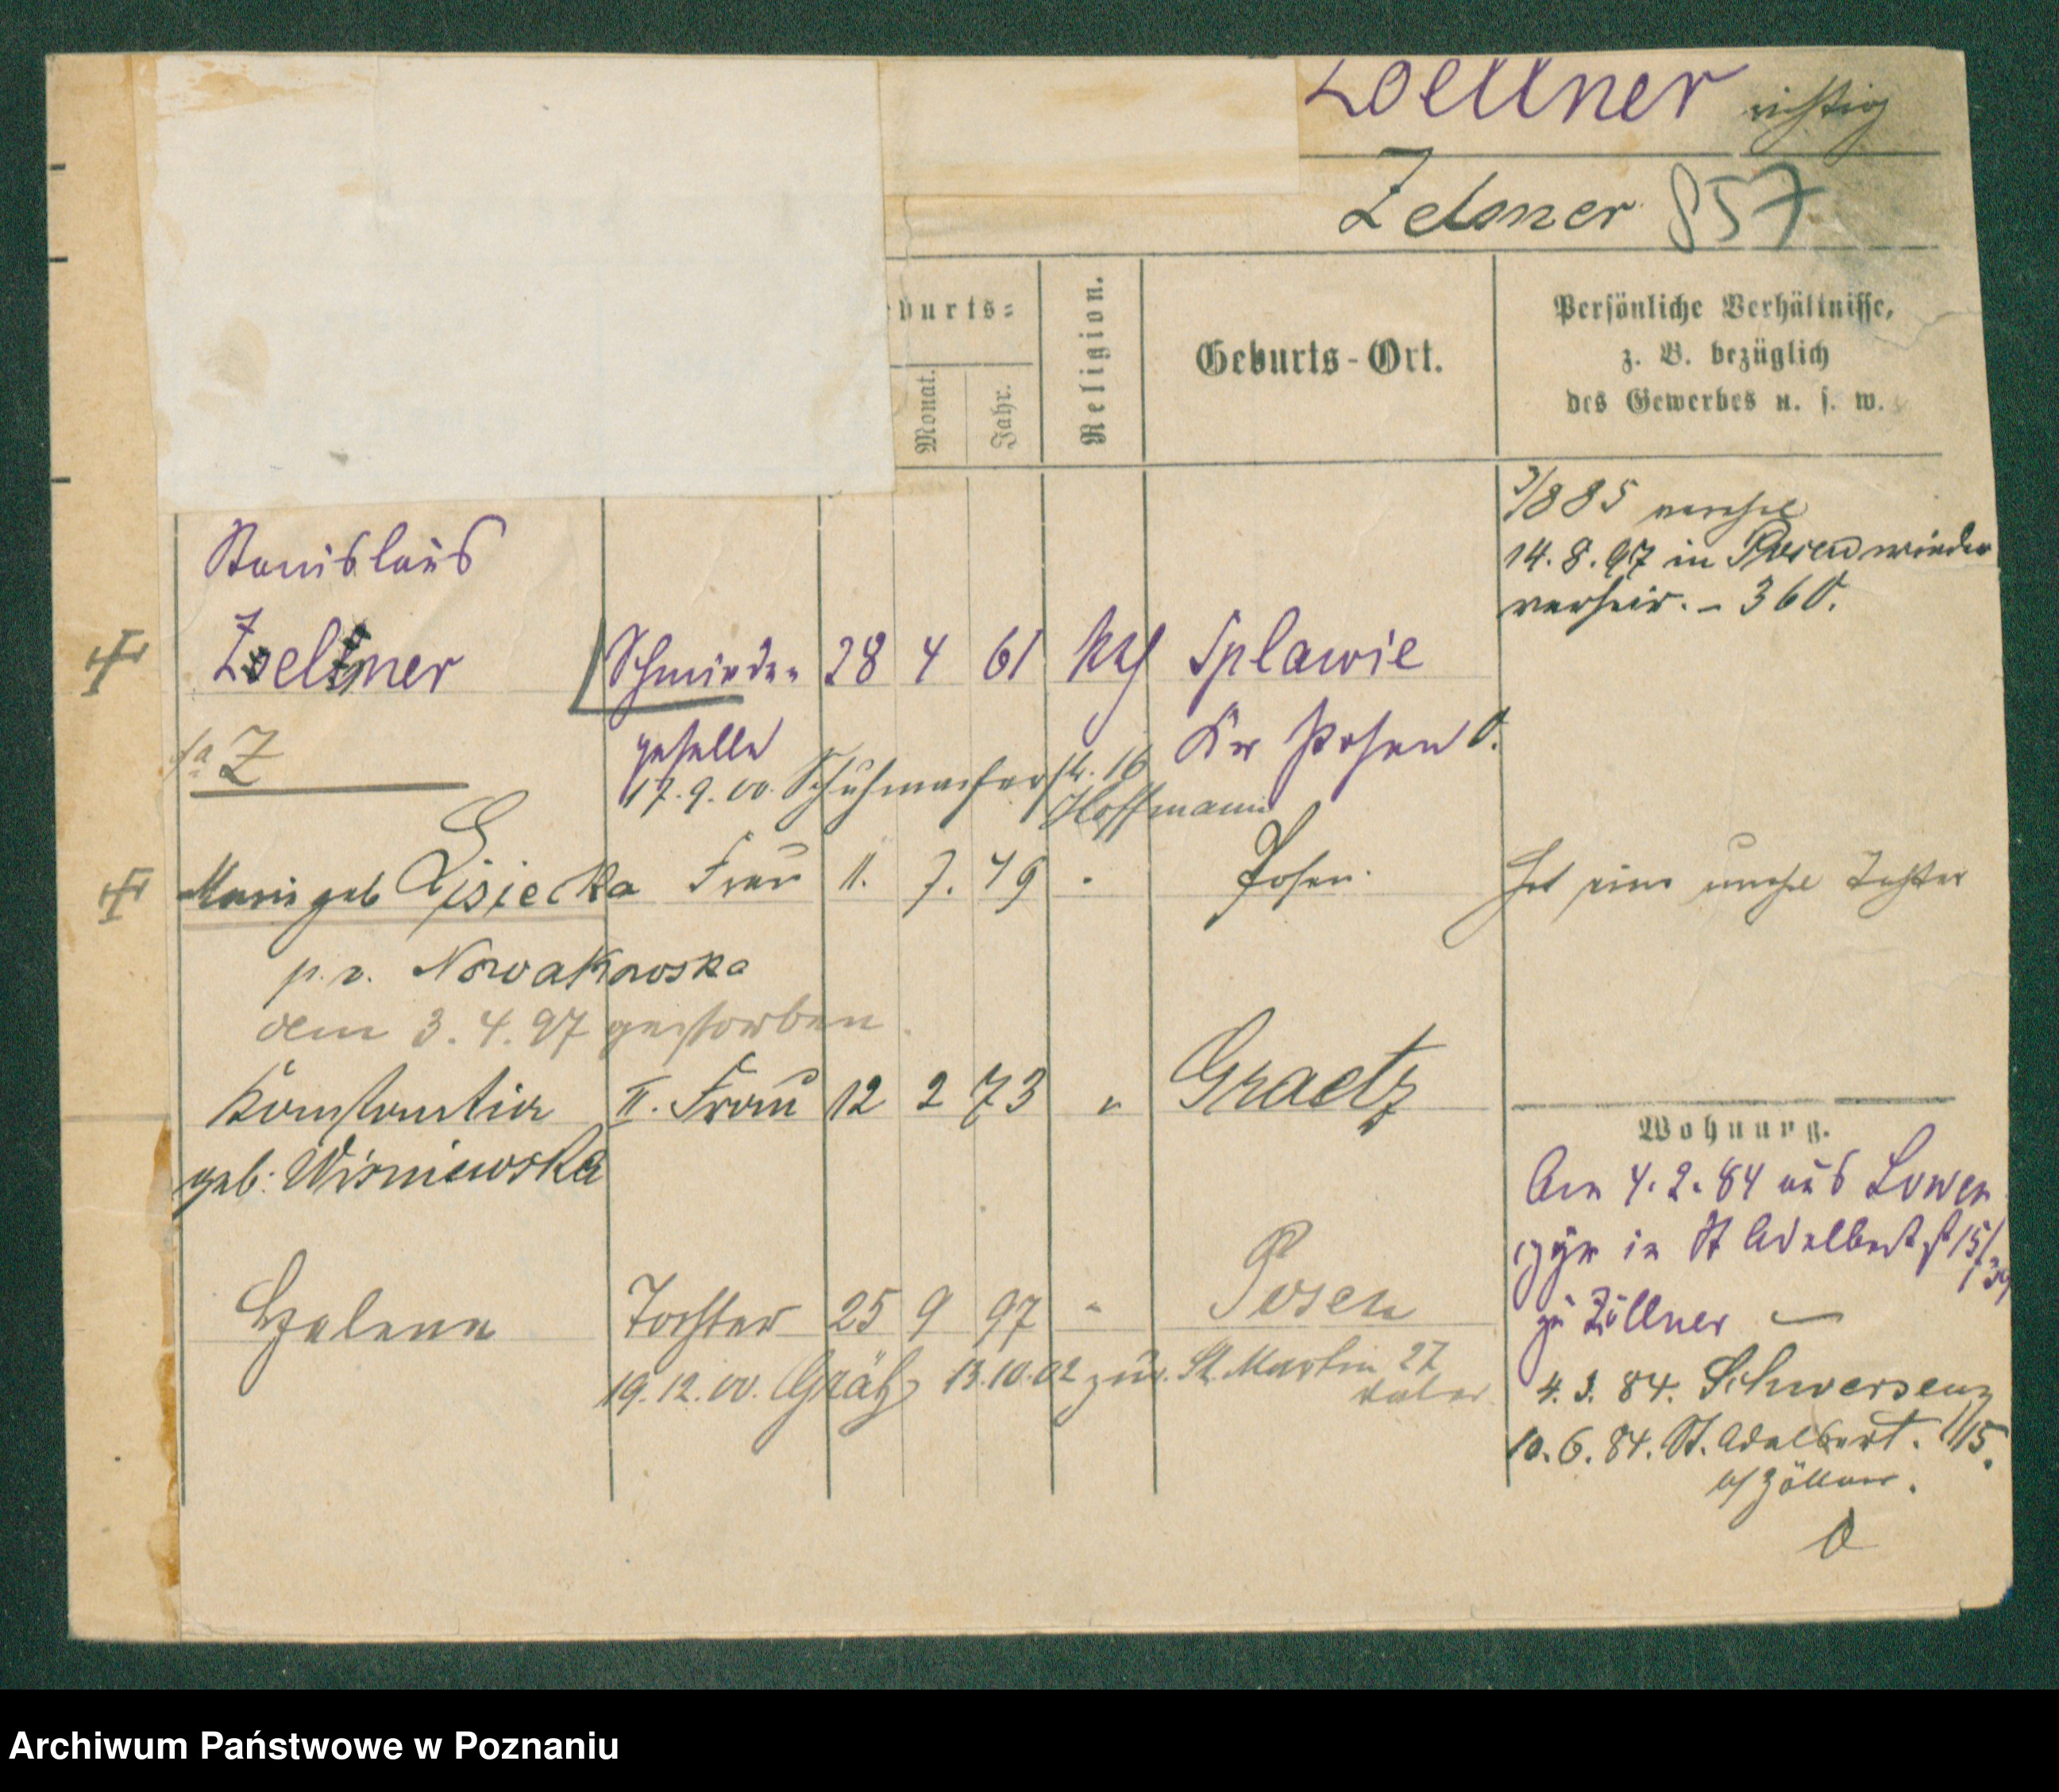 Zoellner richtig
Zelmer 857
burts=
Monat.
Jahr.
Religion.
Geburts-Ort.
Persönliche Verhältnisse,
z. B. bezüglich
des Gewerbes u. s. w.
3/885 verehel
14.8.97 in Posen wieder
verheir. - 360.
Stanislaus
Zoellner Schmiede- 28 4 61 kth Splawie
geselle Kr Posen
Z
17.9.00. Schuhmacherstr. 16
Hoffmann
Marie geb Lisiecka Frau 11. 7. 49 Posen. hat eine unehe Tochter
p. v. Nowakowska
den 3.4.97 gestorben.
Konstantia II. Frau 12 2 73 " Graetz
geb: Wisniewska
Wohnung.
Am 4.2.84 aus Lowen
in St Adelbert st 15/
zu Zöllner
Helene Tochter 25 9 97 " Posen
19.12.00. Grätz 13.10.02 zur. St. Martin 27
4.3.84. Schwersenz
10.6.84. St. Adalbert. 15.
b/ Zöllner.
Archiwum Państwowe w Poznaniu